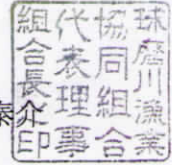 球磨川漁業
協同組合
代表理事
組合長
印